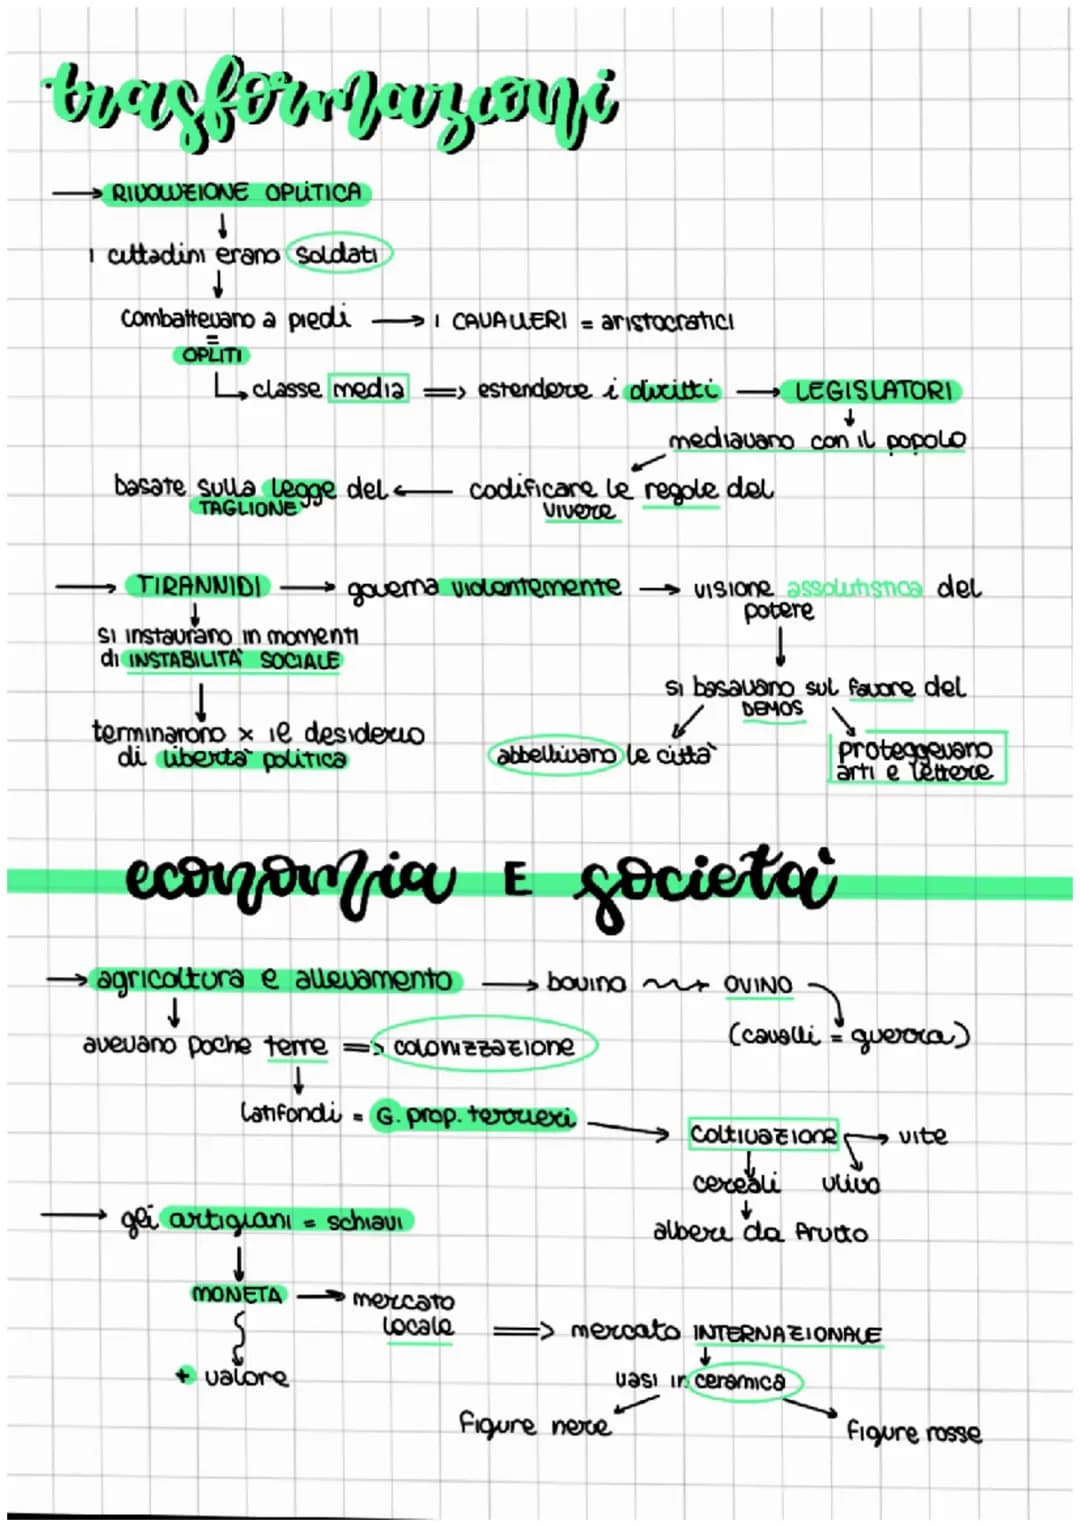 trasformazioni
→ RIVOLUZIONE OPLITICA
↓
i cittadini erano soldati
↓
combattevano a piedi → i CAVALIERI = aristocratici
=
OPLITI
↳ classe media ⇒ estendere i diritti → LEGISLATORI
↓
mediavano con il popolo
basate sulla legge del ← codificare le regole del
TAGLIONE vivere
→ TIRANNIDI → governa violentemente → visione assolutistica del
potere
si instaurano in momenti
di INSTABILITA' SOCIALE
si basavano sul favore del
DEMOS
terminarono x il desiderio
di libertà politica
abbellivano le città
proteggevano
arti e lettere
economia E società
→ agricoltura e allevamento → bovino OVINO
(cavalli = guerra)
avevano poche terre ⇒ colonizzazione
latifondi = G. prop. terrieri
→ coltivazione → vite
cereali ulivo
albert da frutto
→ gli artigiani = schiavi
MONETA → mercato
locale ⇒ mercato INTERNAZIONALE
+ valore
vasi in ceramica
figure nere
figure rosse